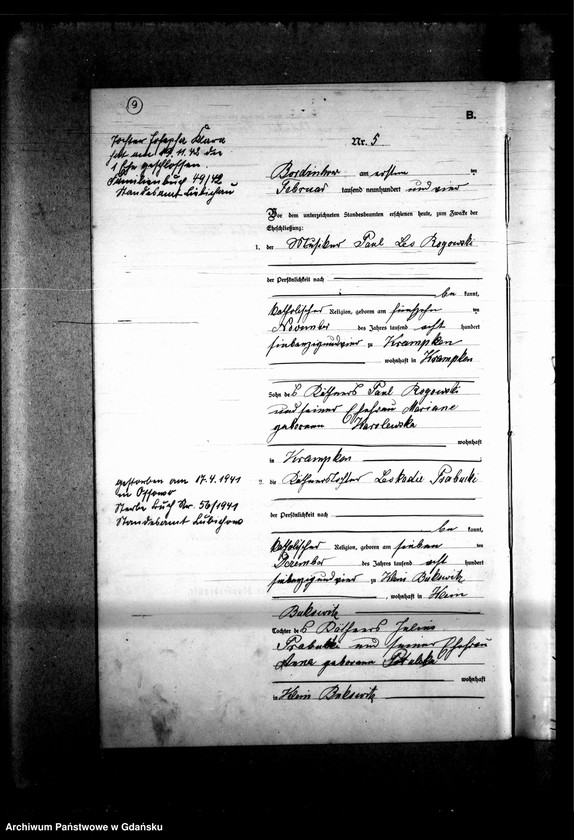 9
B.
Tochter Josepha Klara
hat am 17.11.42 die
1 Ehe geschlossen.
Familienbuch 49/42
Standesamt Lubichau
Nr. 5
am ersten ten
Februar tausend neunhundert und vier
Vor dem unterzeichneten Standesbeamten erschienen heute, zum Zwecke der
Eheschließung:
1. der Musiker Paul Les Rogowski
der Persönlichkeit nach
be kannt,
katholischer Religion, geboren am fünfzehn ten
November des Jahres tausend acht hundert
siebenzigundvier zu Krampken
, wohnhaft in Krampken
Sohn des Käthners Paul Rogowski
und seiner Ehefrau Mariane
geborenen Karolewska
wohnhaft
in Krampken
gestorben am 17.4.1941
in Ossowo
Sterbe Buch Nr. 56/1941
Standesamt Lubichow
2. die Käthnerstochter Leokadie
der Persönlichkeit nach
be kannt,
katholischer Religion, geboren am sieben ten
Dezember des Jahres tausend acht hundert
siebenzigundvier zu Klein Bukowitz
, wohnhaft in Klein
Bukowitz
Tochter des Käthners Julius
und seiner Ehefrau
Anna geborenen
wohnhaft
in Klein Bukowitz
Archiwum Państwowe w Gdańsku